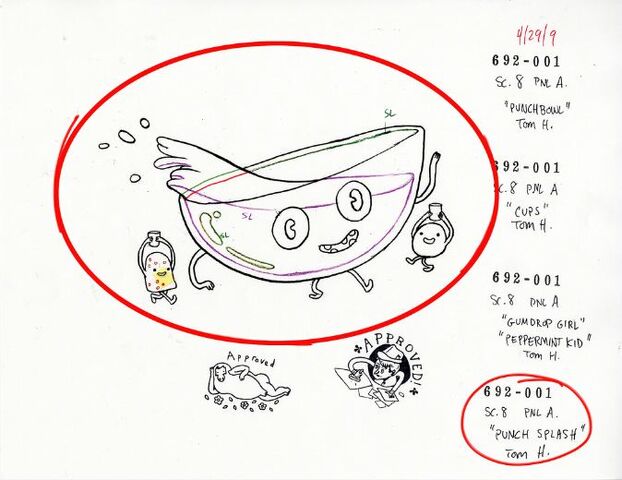 4/29/9
692-001
SC. 8 PNL A.
"PUNCHBOWL"
TOM H.
SL
692-001
SC. 8 PNL A
"CUPS"
TOM H.
SL
SL
692-001
SC. 8 PNL A
"GUMDROP GIRL"
"PEPPERMINT KID"
TOM H.
Approved
APPROVED!
692-001
SC. 8 PNL A.
"PUNCH SPLASH"
TOM H.